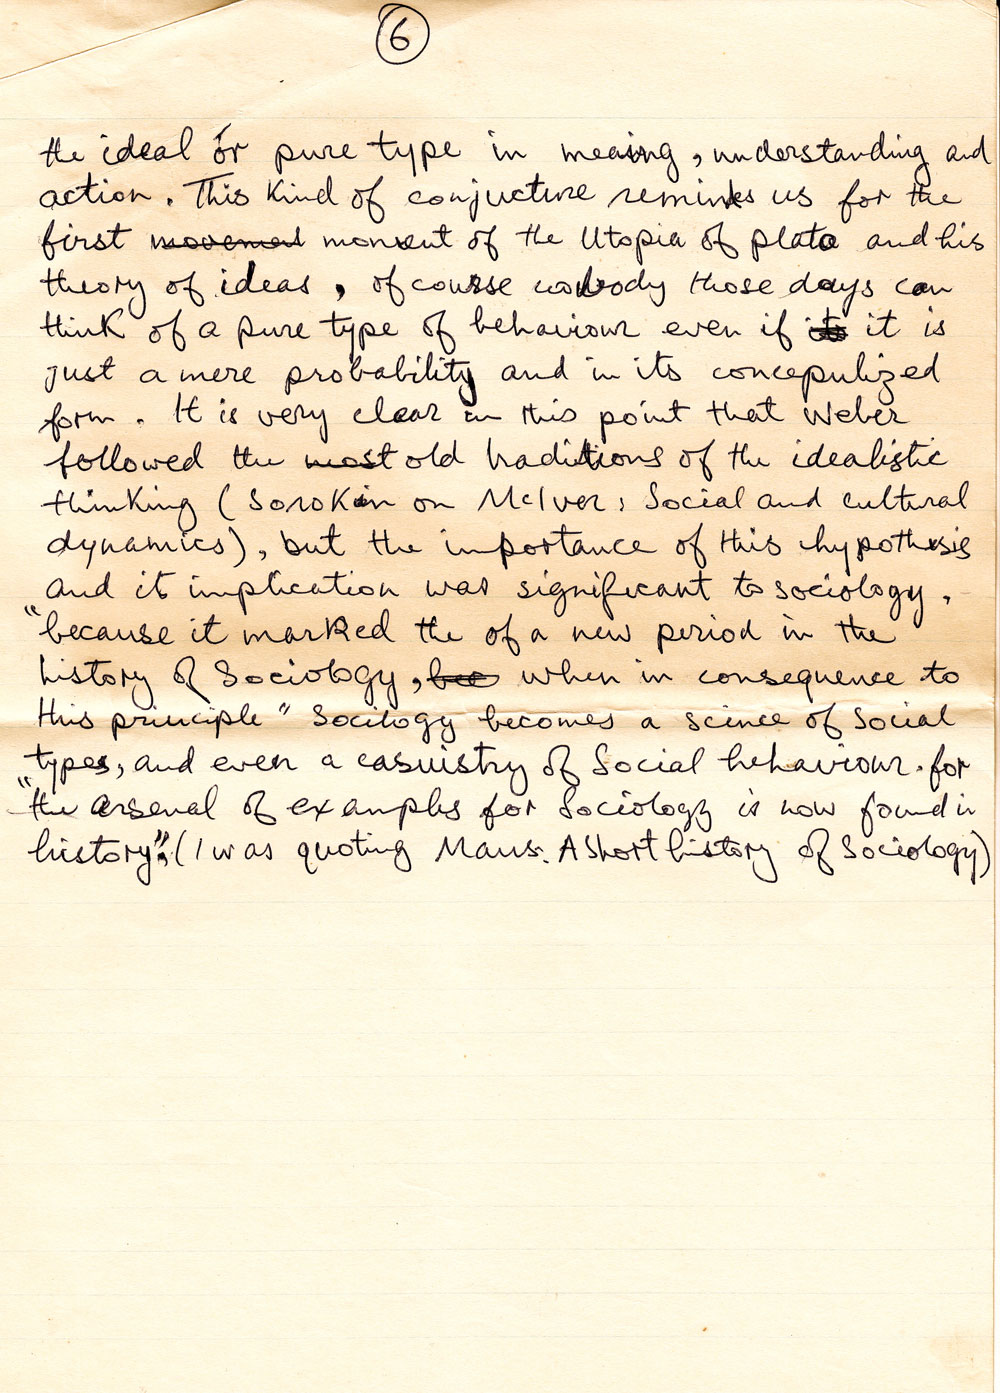 6
the ideal or pure type in meaning, understanding and
action. This Kind of conjucture reminds us for the
first movement moment of the Utopia of plato and his
theory of ideas, of course nobody those days can
think of a pure type of behaviour even if its it is
just a mere probability and in its concepulized
form. It is very clear in this point that Weber
followed the most old traditions of the idealistic
thinking (Sorokin on McIver: Social and cultural
dynamics), but the importance of this hypothesis
and it implication was significant to sociology,
"because it marked the of a new period in the
history of Sociology, bec when in consequence to
this principle" Socilogy becomes a scince of Social
types, and even a casuistry of Social behaviour. for
"the arsenal of examples for Sociology is now found in
history". (I was quoting Maus. A Short history of Sociology)